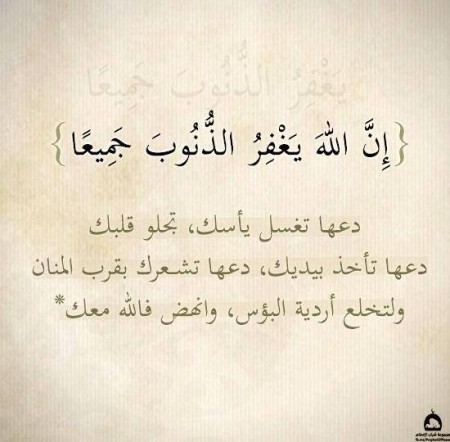 يَغْفِرُ الذُّنُوبَ جَمِيعًا
{إِنَّ اللهَ يَغْفِرُ الذُّنُوبَ جَمِيعًا}
دعها تغسل يأسك، تجلو قلبك
دعها تأخذ بيديك، دعها تشعرك بقرب المنان
ولتخلع أردية البؤس، وانهض فالله معك*